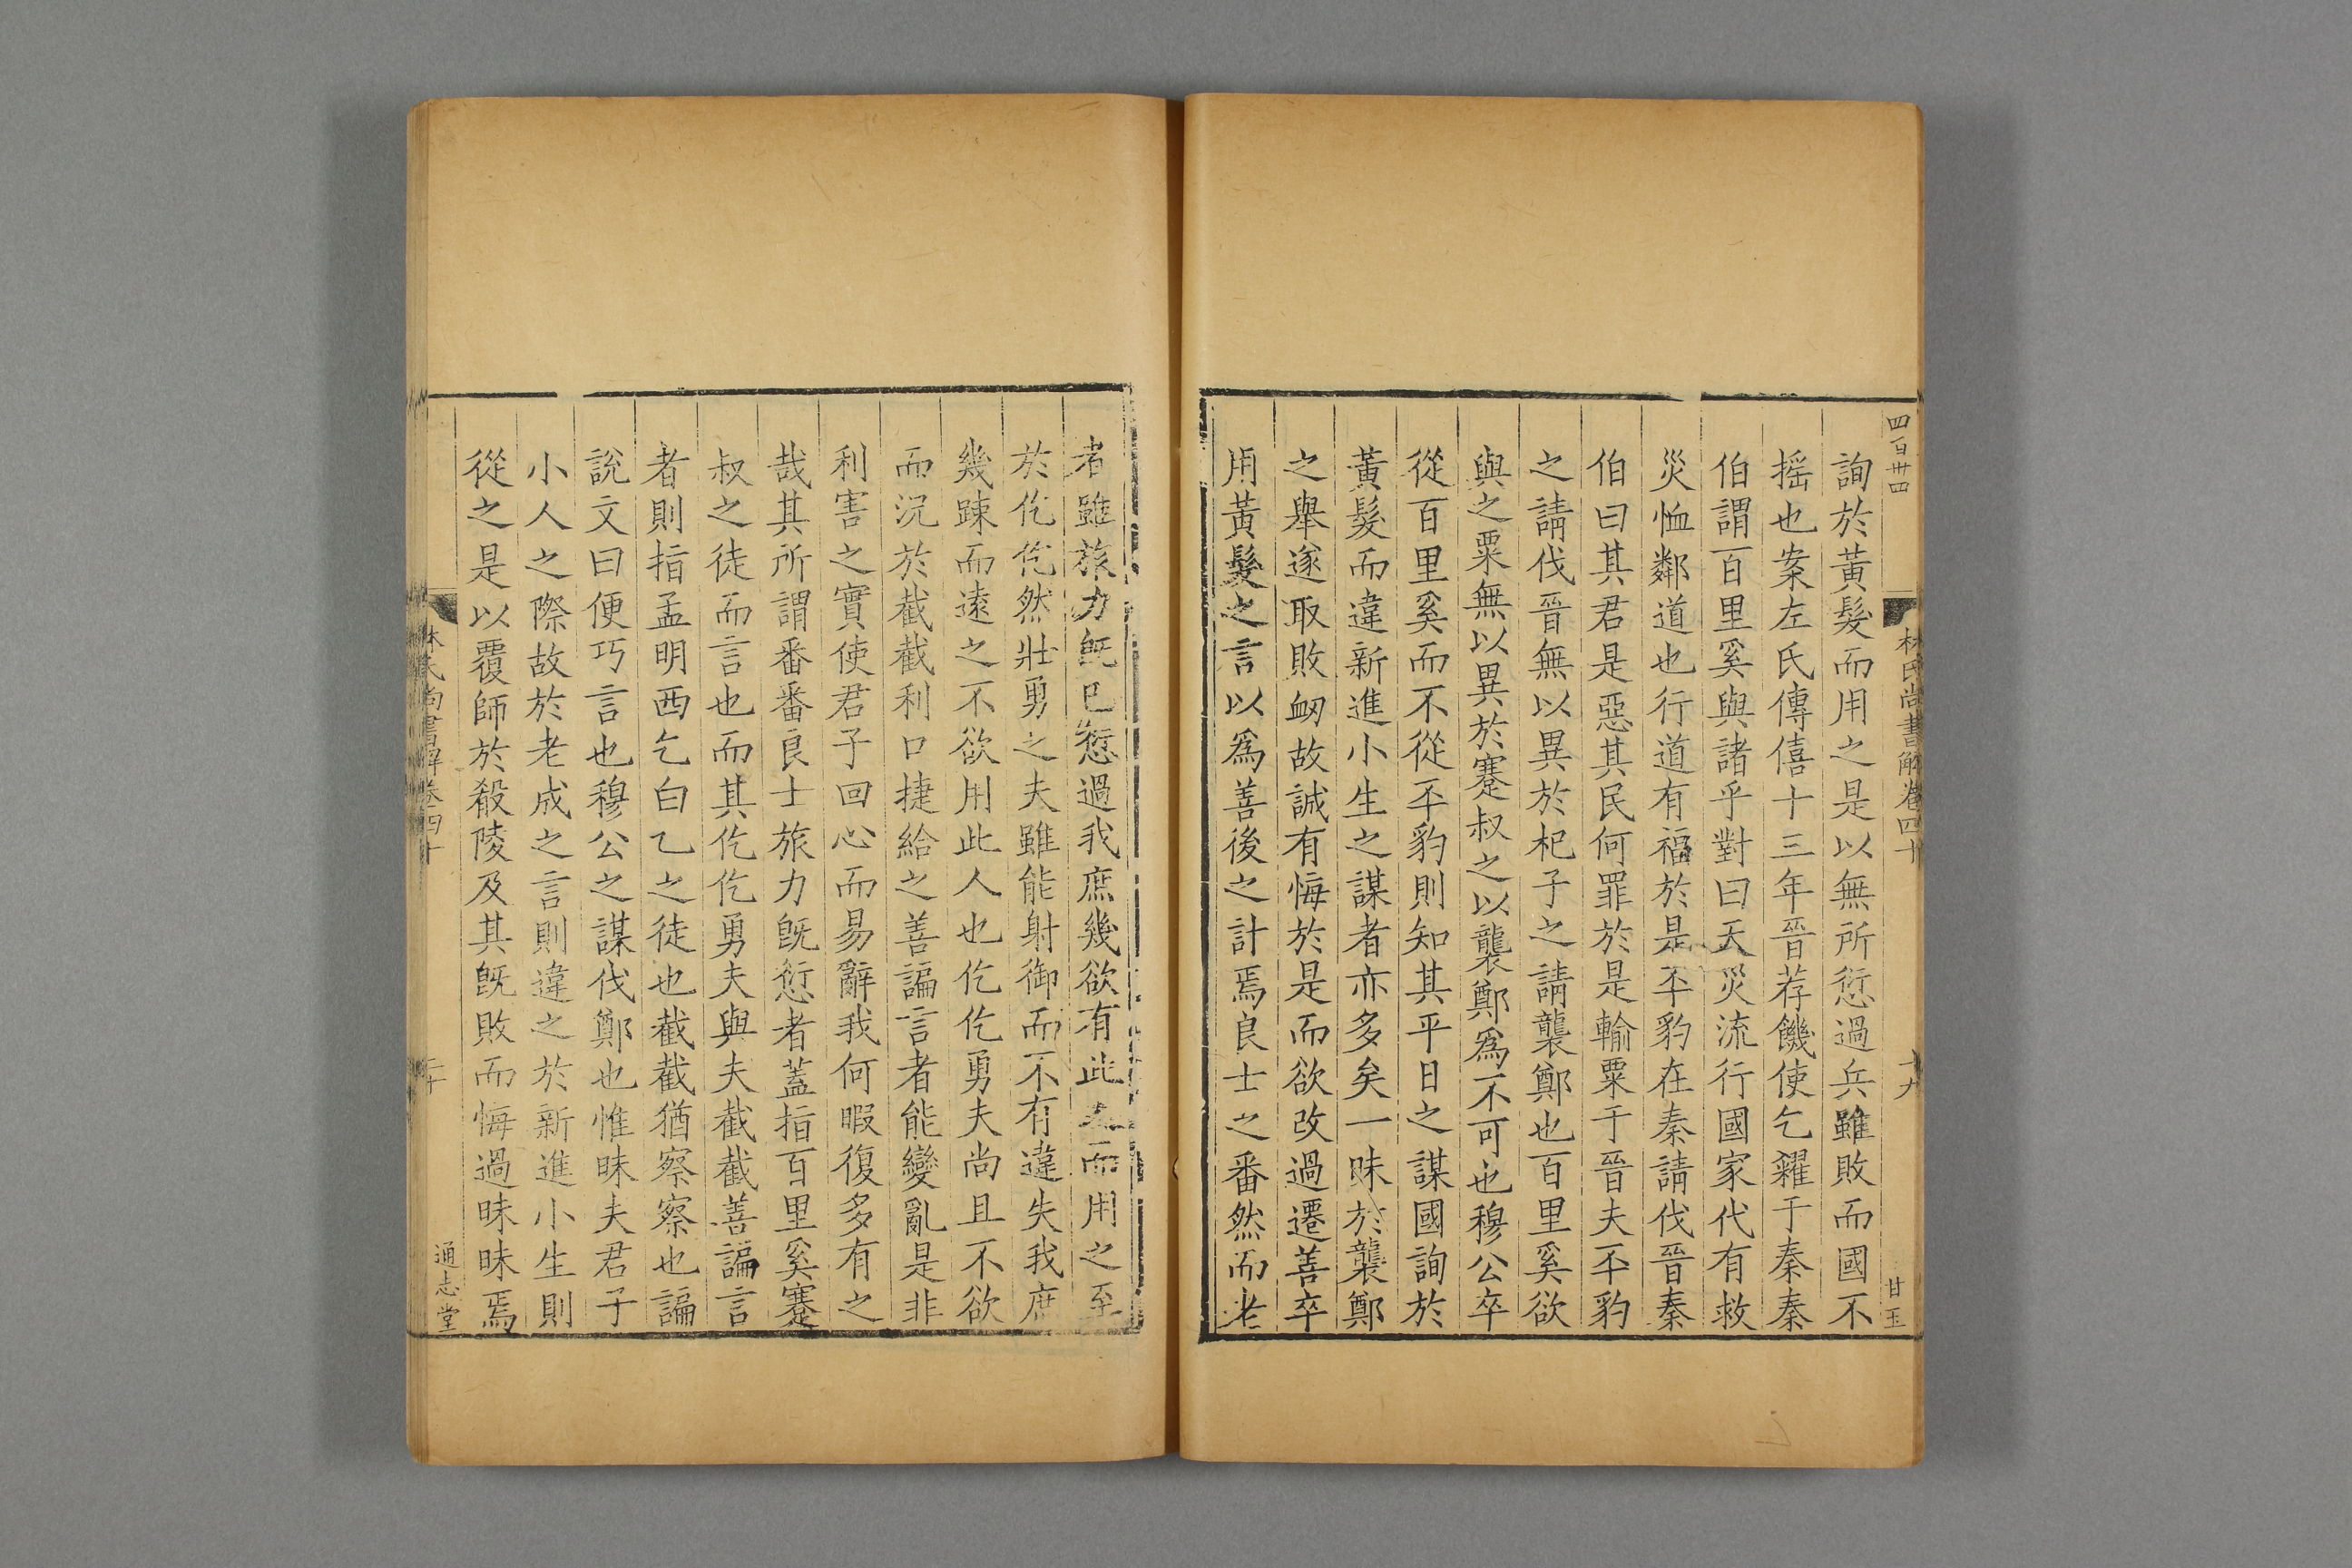 四百卌四
林氏尚書解卷四十
十九
甘玉
詢於黃髮而用之是以無所愆過兵雖敗而國不
揺也案左氏傳僖十三年晉荐饑使乞糴于秦秦
伯謂百里奚與諸乎對曰天災流行國家代有救
災恤鄰道也行道有福於是丕豹在秦請伐晉秦
伯曰其君是惡其民何罪於是輸粟于晉夫丕豹
之請伐晉無以異於杞子之請襲鄭也百里奚欲
與之粟無以異於蹇叔之以襲鄭爲不可也穆公卒
從百里奚而不從丕豹則知其平日之謀國詢於
黃髮而違新進小生之謀者亦多矣一昧於襲鄭
之舉遂取敗衂故誠有悔於是而欲改過遷善卒
用黃髮之言以爲善後之計焉良士之番然而老
者雖旅力旣已愆過我庶幾欲有此而用之至
於仡仡然壯勇之夫雖能射御而不有違失我庶
幾踈而遠之不欲用此人也仡仡勇夫尚且不欲
而況於截截利口捷給之善諞言者能變亂是非
利害之實使君子回心而易辭我何暇復多有之
哉其所謂番番良士旅力旣愆者蓋指百里奚蹇
叔之徒而言也而其仡仡勇夫與夫截截善諞言
者則指孟明西乞白乙之徒也截截猶察察也諞
說文曰便巧言也穆公之謀伐鄭也惟昧夫君子
小人之際故於老成之言則違之於新進小生則
從之是以覆師於殽陵及其旣敗而悔過昧昧焉
林氏尚書解卷四十
二十
通志堂